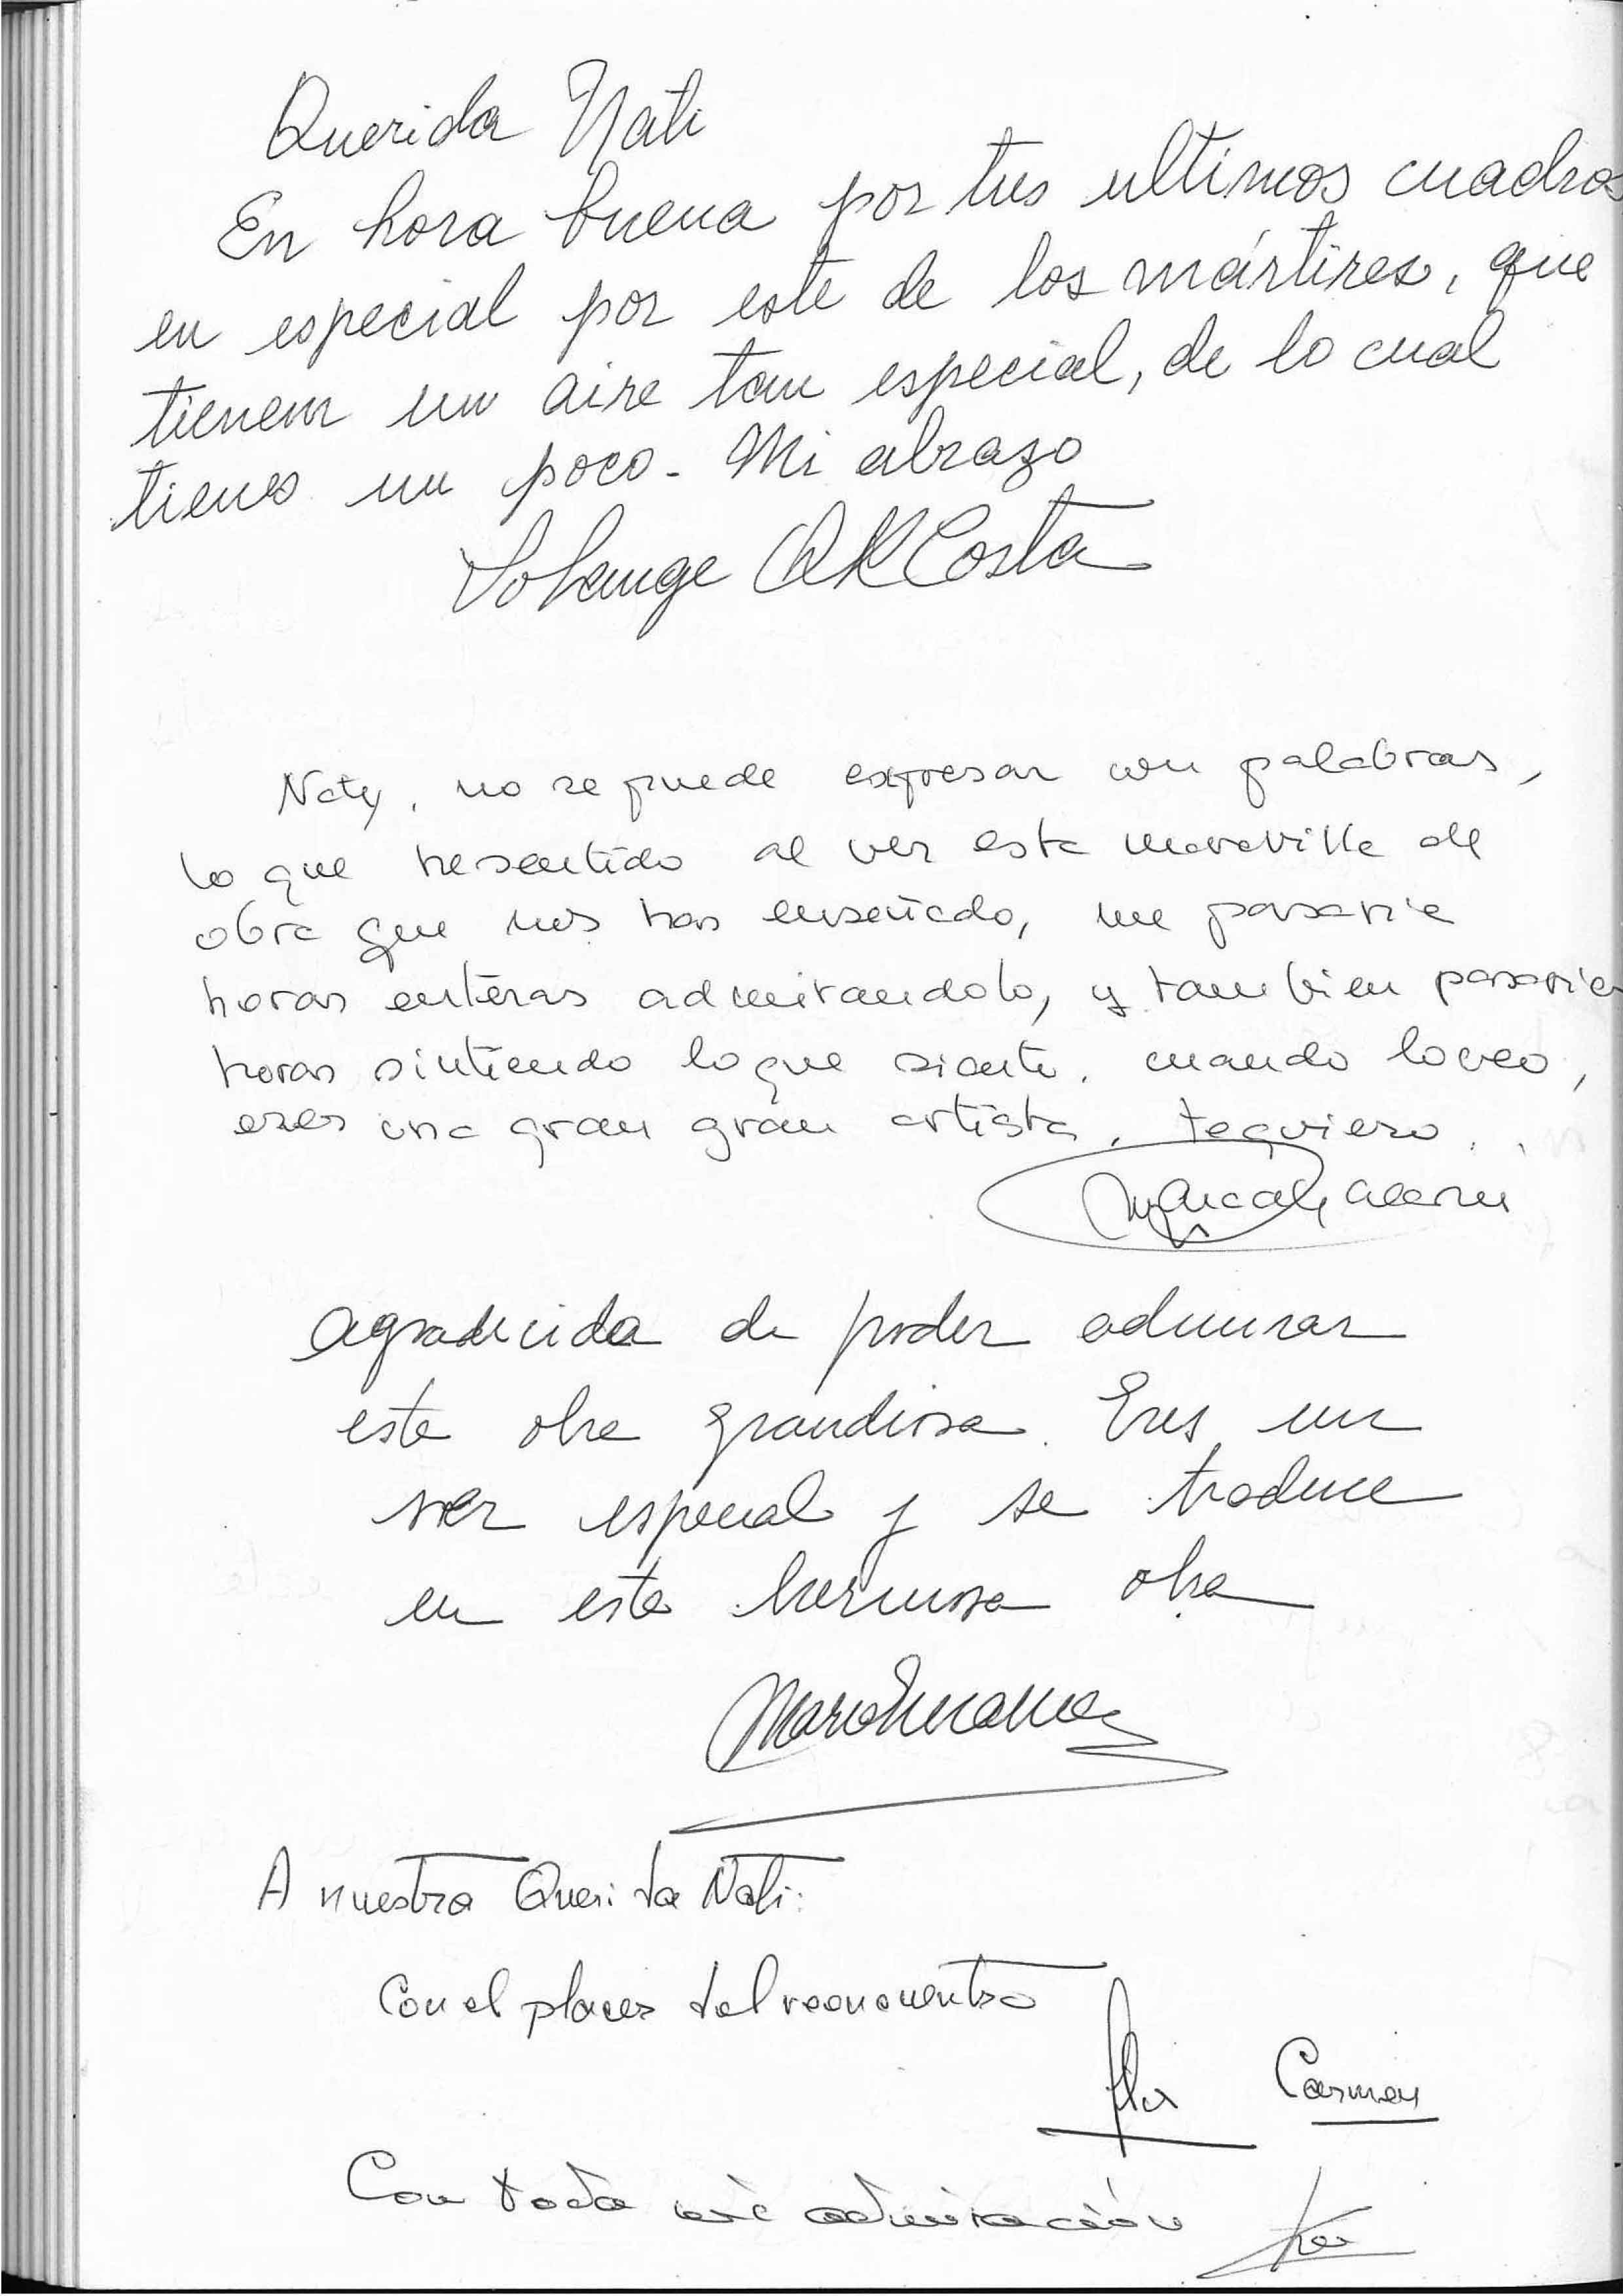 Querida Nati
En hora buena por tus ultimos cuadros
en especial por este de los mártires, que
tienem un aire tam especial, de lo cual
tienes un poco - Mi abrazo
Solange Costa
Naty, no se puede expresar con palabras,
lo que he sentido al ver esta maravilla de
obra que nos has enseñado, me pasaria
horas enteras admirandolo, y tambien pasaria
horas sintiendo lo que siento, cuando lo veo,
eres una gran gran artista, te quiero.
agradecida de poder admirar
esta obra grandiosa. Eres un
ser especial y se traduce
en esta hermosa obra
A nuestra Querida Nati:
Con el placer del reencuentro
Carmen
Con toda mi admiración